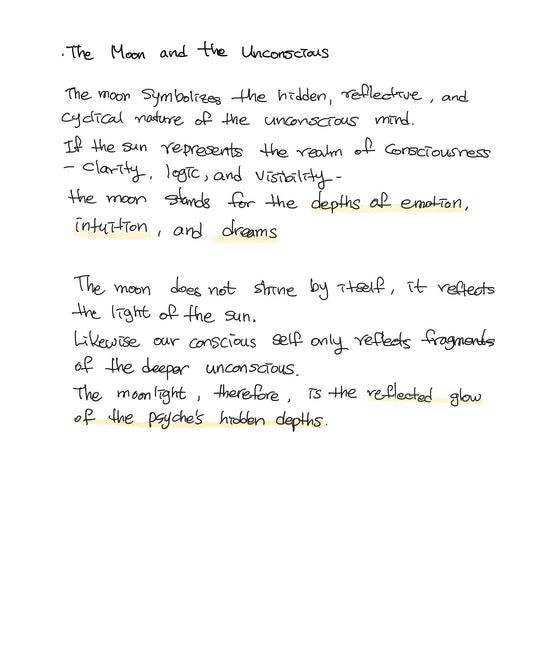 ·The Moon and the Unconscious
The moon symbolizes the hidden, reflective, and
cyclical nature of the unconscious mind.
If the sun represents the realm of consciousness
– clarity, logic, and visibility –
the moon stands for the depths of emotion,
intuition, and dreams
The moon does not shine by itself, it reflects
the light of the sun.
Likewise our conscious self only reflects fragments
of the deeper unconscious.
The moonlight, therefore, is the reflected glow
of the psyche's hidden depths.